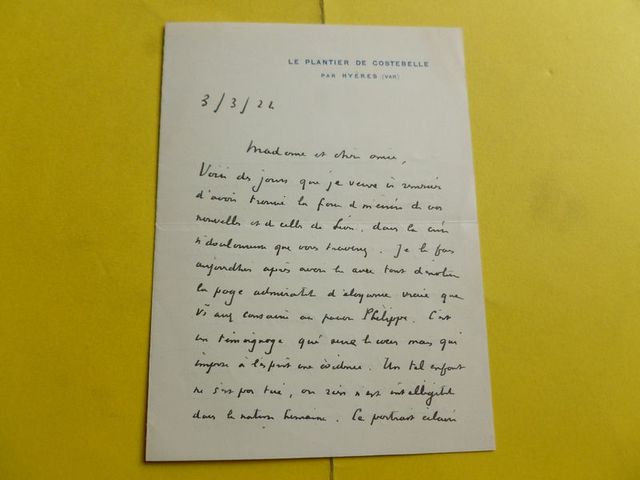 LE PLANTIER DE COSTEBELLE
PAR HYÈRES (VAR)
3/3/24
Madame et chère amie,
Voici des jours que je veux vous remercier
d'avoir trouvé la force de m'écrire de vos
nouvelles et de celles de Léon, dans la crise
si douloureuse que vous traversez. Je le fais
aujourd'hui après avoir lu avec tant d'émotion
la page admirable d'éloquence vraie que
vs avez consacrée au pauvre Philippe. C'est
un témoignage qui serre le cœur mais qui
impose à l'esprit une évidence. Un tel enfant
ne s'est pas tué, ou rien n'est intelligible
dans la nature humaine. Ce portrait éclaire